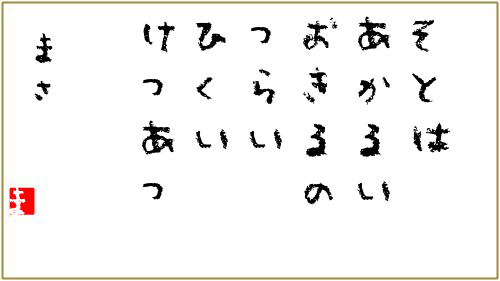 そとは
あかるい
おきるの
つらい
ひくい
けつあつ
まさ
ま